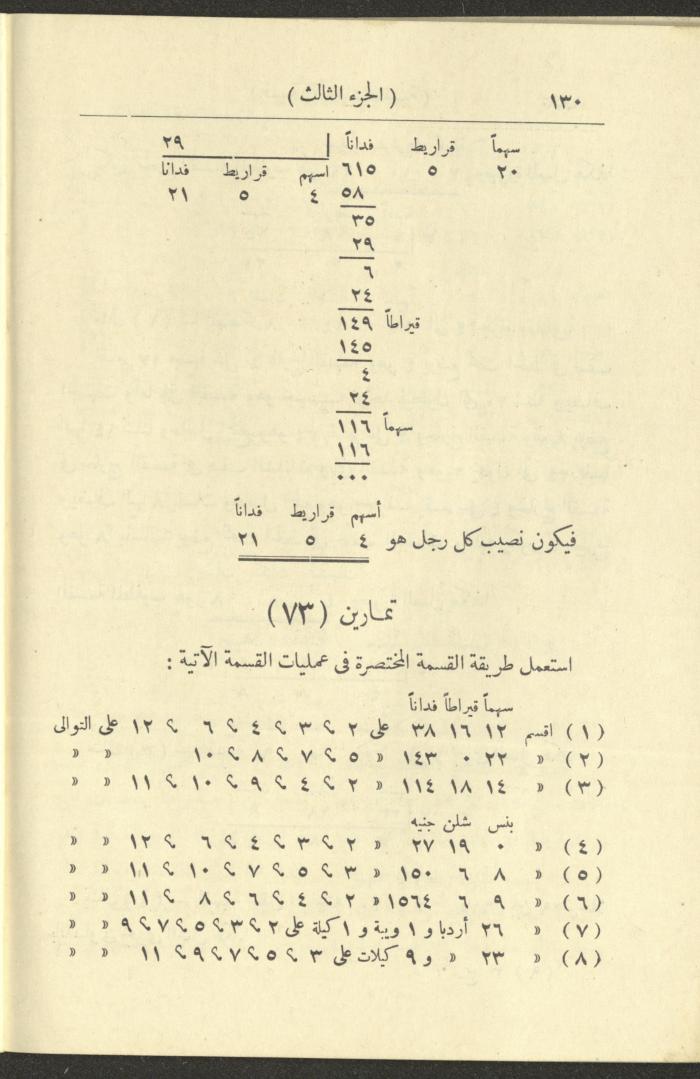 ١٣٠ (الجزء الثالث)
سهماً قراريط فداناً ٢٩
٢٠ ٥ ٦١٥ اسهم قراريط فدانا
٥٨ ٤ ٥ ٢١
٣٥
٢٩
٦
٢٤
قيراطاً ١٤٩
١٤٥
٤
٢٤
سهماً ١١٦
١١٦
٠٠٠
أسهم قراريط فداناً
فيكون نصيب كل رجل هو ٤ ٥ ٢١
تمارين (٧٣)
استعمل طريقة القسمة المختصرة فى عمليات القسمة الآتية :
سهماً قيراطاً فداناً
(١) اقسم ١٢ ١٦ ٣٨ على ٢ و ٣ و ٤ و ٦ و ١٢ على التوالى
(٢) « ٢٢ ٠ ١٤٣ « ٥ و ٧ و ٨ و ١٠ « «
(٣) « ١٤ ١٨ ١١٤ « ٢ و ٤ و ٩ و ١٠ و ١١ « «
بنس شلن جنيه
(٤) « ٠ ١٩ ٢٧ « ٢ و ٣ و ٤ و ٦ و ١٢ « «
(٥) « ٨ ٦ ١٥٠ « ٣ و ٥ و ٧ و ١٠ و ١١ « «
(٦) « ٩ ٦ ١٥٦٤ « ٢ و ٤ و ٦ و ٨ و ١١ « «
(٧) « ٢٦ أردبا و ١ ويبة و ١ كيلة على ٢ و ٣ و ٥ و ٧ و ٩ « «
(٨) « ٢٣ « و ٩ كيلات على ٣ و ٥ و ٧ و ٩ و ١١ « «